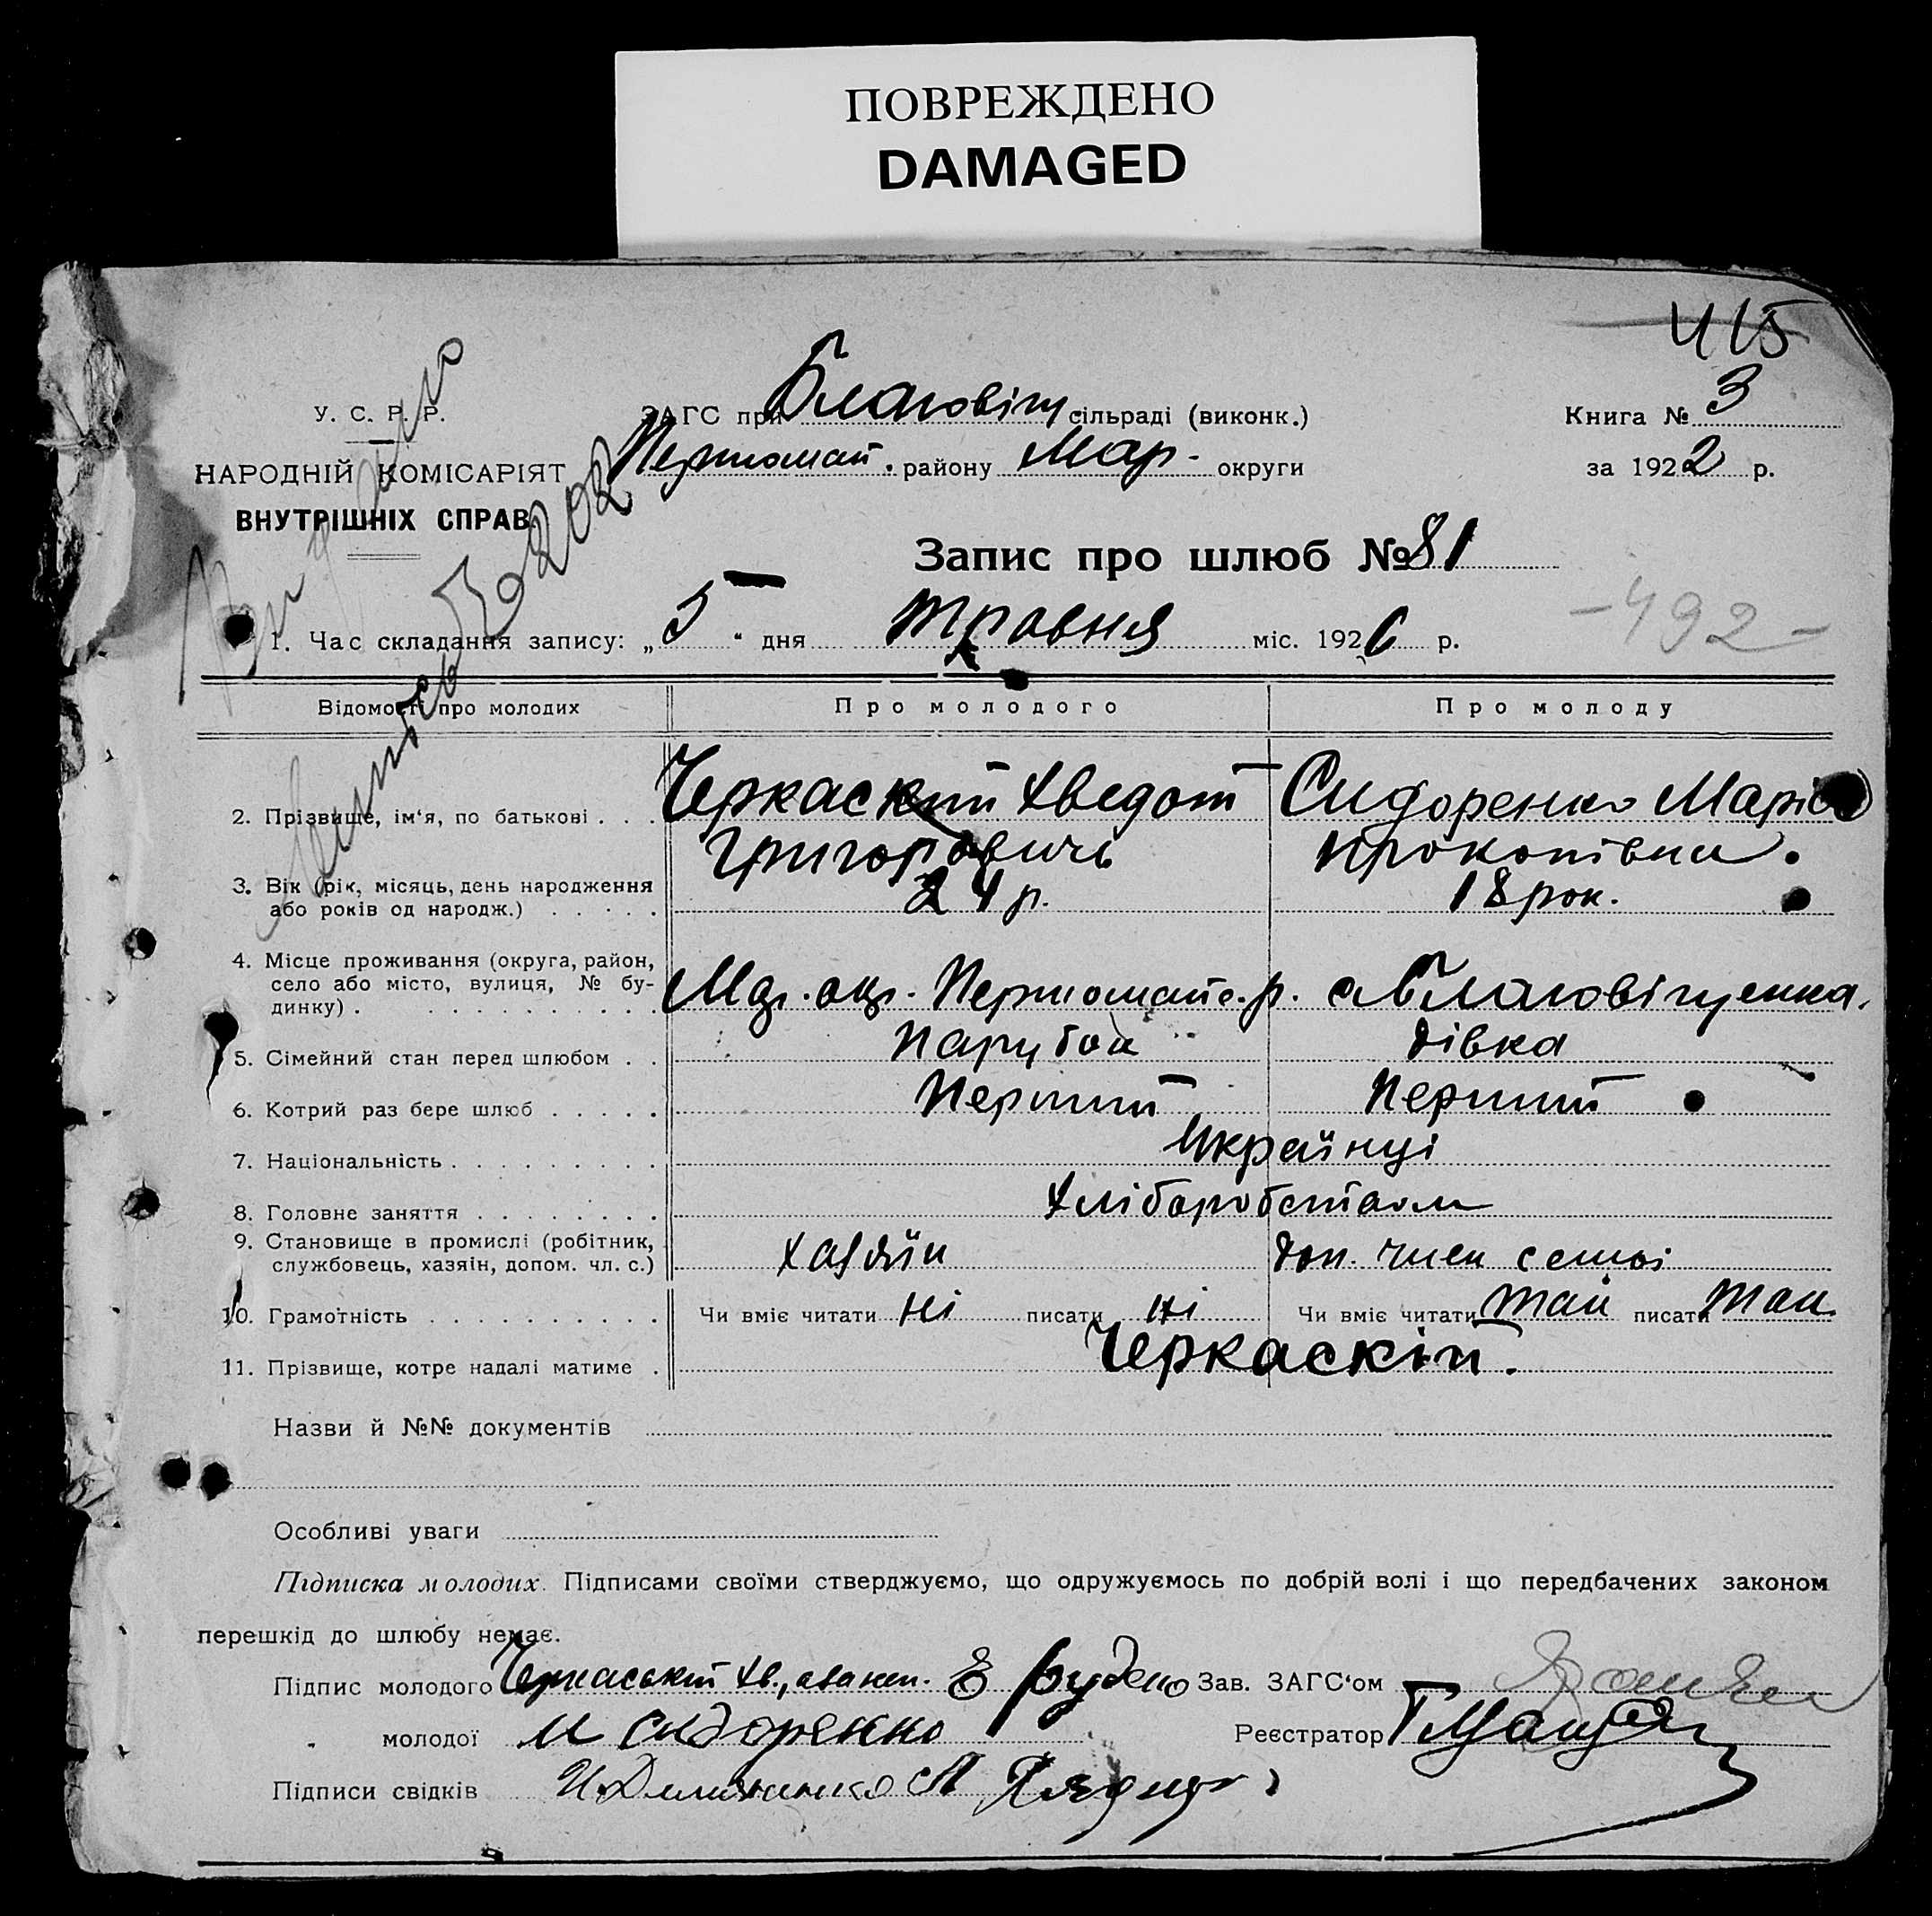 ПОВРЕЖДЕНО
DAMAGED
415
У. С. Р. Р.
НАРОДНІЙ КОМІСАРІЯТ
ВНУТРІШНІХ СПРАВ
ЗАГС при Благовіщ сільраді (виконк.)
Першомай. району Мар. округи
Книга № 3
за 1922 р.
Запис про шлюб № 81
-492-
1. Час складання запису: „5" дня травня міс. 1926 р.
Відомості про молодих Про молодого Про молоду
2. Прізвище, ім'я, по батькові . . . Черкаский Хведот Григоровичь Сидоренко Марія Прокопівна.
3. Вік (рік, місяць, день народження або років од народж.) . . . . . 24 р. 18 рок.
4. Місце проживання (округа, район, село або місто, вулиця, № будинку) . Мар. окр. Першомайс. р. с. Благовіщенка.
5. Сімейний стан перед шлюбом . . Парубок дівка
6. Котрий раз бере шлюб . . . . . Перший Перший
7. Національність . . . . . . . . . Українці
8. Головне заняття . . . . . . . . Хліборобством
9. Становище в промислі (робітник, службовець, хазяїн, допом. чл. с.) хазяїн доп. член семьі
10. Грамотність . . . . . . . . . . Чи вміє читати ні писати ні Чи вміє читати так писати так
11. Прізвище, котре надалі матиме . Черкаскій.
Назви й №№ документів
Особливі уваги
Підписка молодих. Підписами своїми стверджуємо, що одружуємось по добрій волі і що передбачених законом
перешкід до шлюбу немає.
Підпис молодого Черкаський Хв., Зав. ЗАГС'ом
" молодої М Сидоренко Реєстратор
Підписи свідків